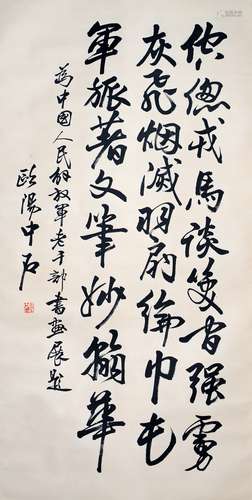 倥偬戎馬談笑强虜
灰飛烟滅羽扇綸巾
軍旅著文筆妙翰華
為中國人民解放軍老干部書畫展題
歐陽中石